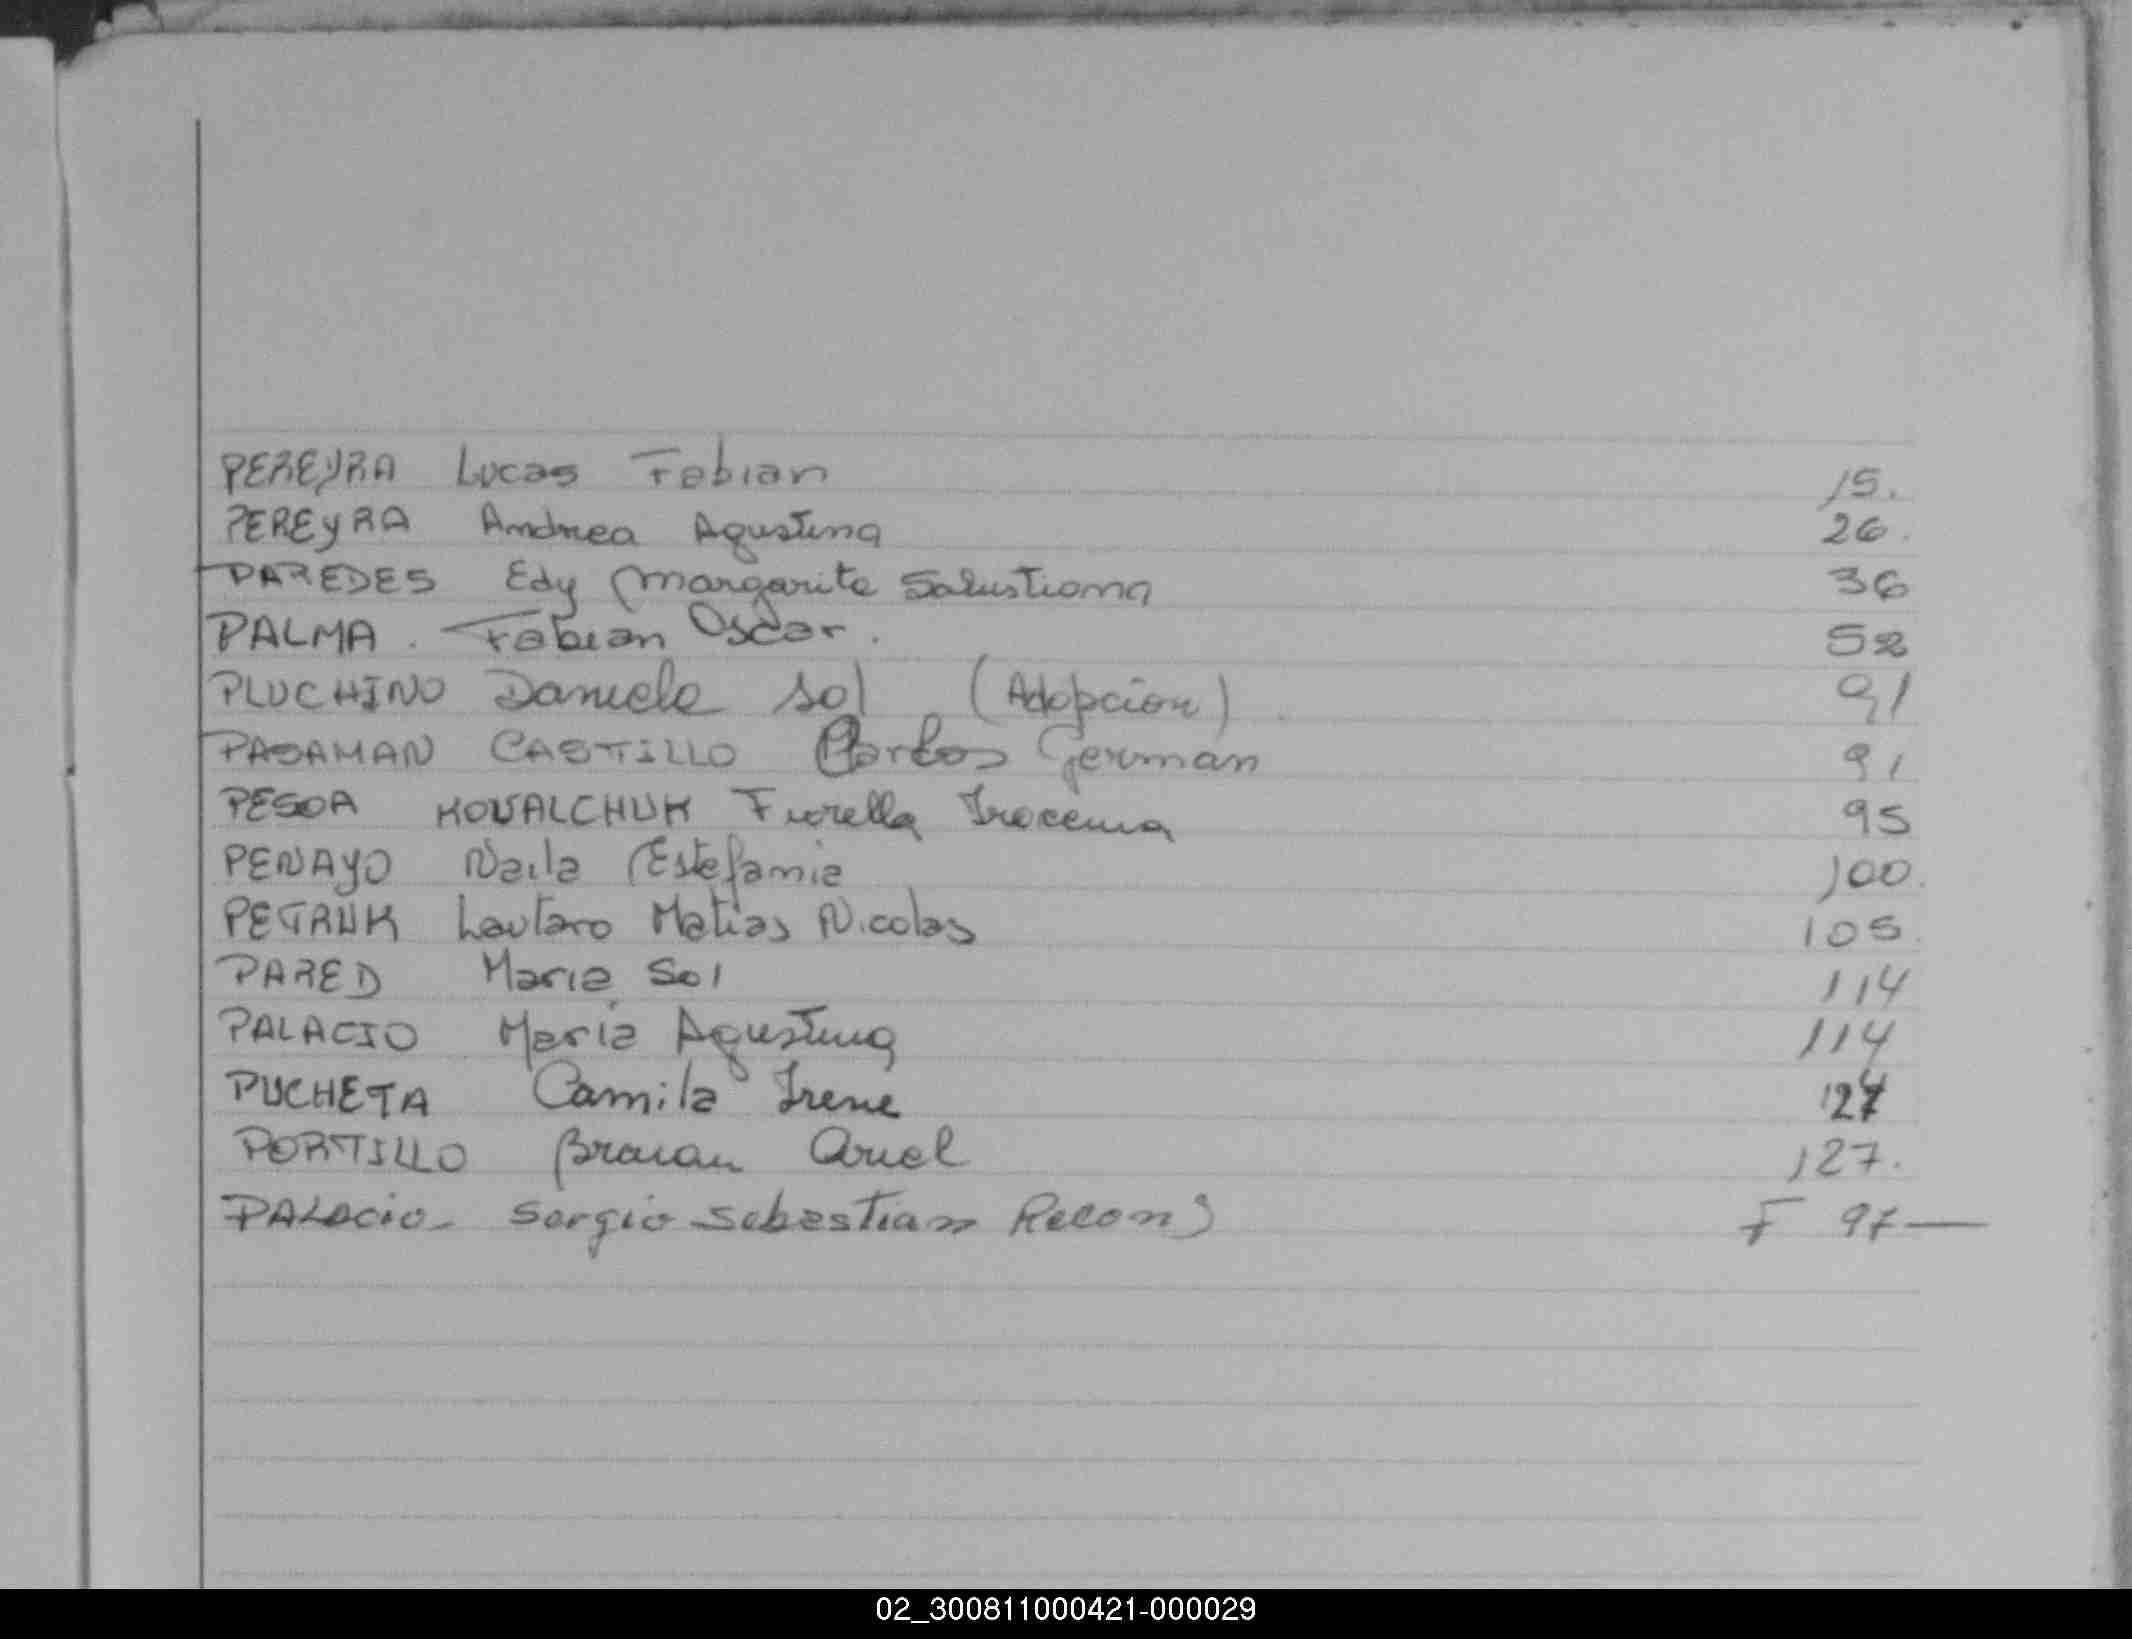 PEREYRA Lucas Fabian 15.
PEREYRA Andrea Agustina 26.
PAREDES Edy Margarita Salustiana 36
PALMA. Fabian Oscar. 52
PLUCHINO Daniela Sol (Adopcion) 91
PASAMAN CASTILLO Carlos German 91
PESOA KOVALCHUK Fiorella Irocema 95
PENAYO Naila Estefania 100.
PETRUK Lautaro Matias Nicolas 105.
PARED Maria Sol 114
PALACIO Maria Agustina 114
PUCHETA Camila Irene 127
PORTILLO Braian Ariel 127.
PALAcio- Sergio Sebastian Recon) F 97—
02_300811000421-000029